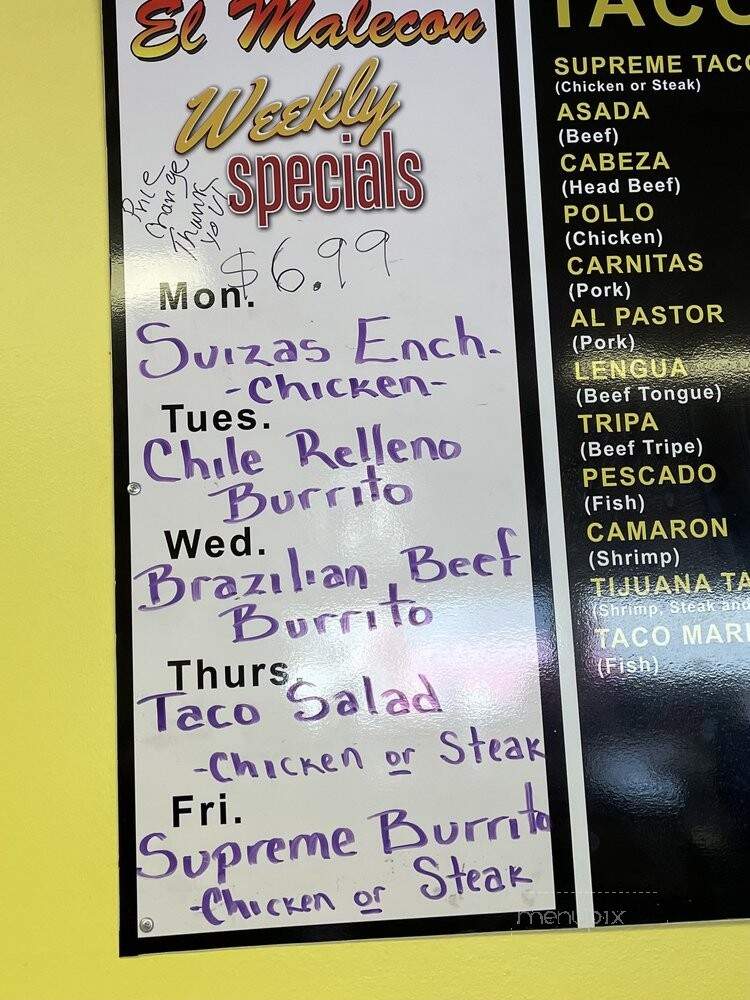 El Malecon
Weekly
specials
Price
Change
Thank
you!
$6.99
Mon.
Suizas Ench.
-Chicken-
Tues.
Chile Relleno
Burrito
Wed.
Brazilian Beef
Burrito
Thurs.
Taco Salad
-Chicken or Steak
Fri.
Supreme Burrito
-Chicken or Steak
SUPREME TACO
(Chicken or Steak)
ASADA
(Beef)
CABEZA
(Head Beef)
POLLO
(Chicken)
CARNITAS
(Pork)
AL PASTOR
(Pork)
LENGUA
(Beef Tongue)
TRIPA
(Beef Tripe)
PESCADO
(Fish)
CAMARON
(Shrimp)
TIJUANA TA
(Shrimp, Steak and
TACO MARI
(Fish)
menupix